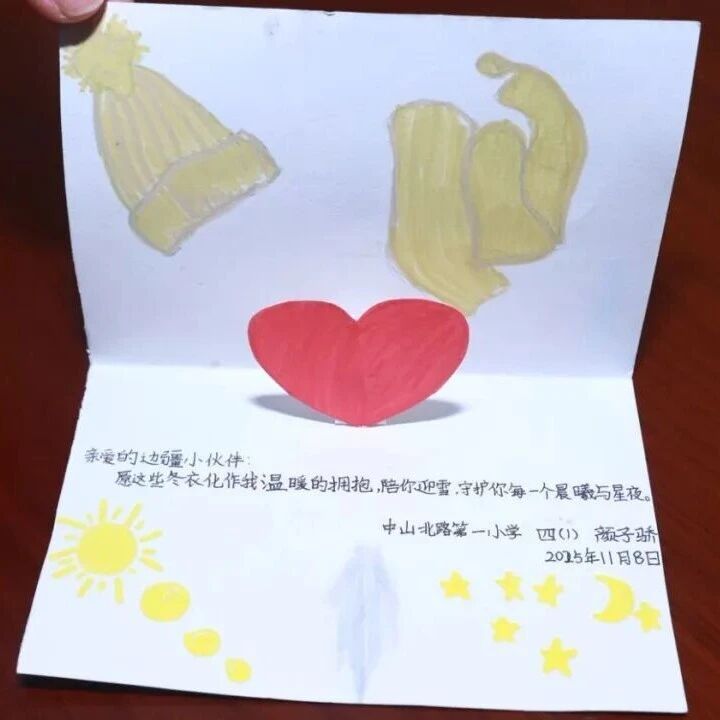 亲爱的边疆小伙伴：
愿这些冬衣化作我温暖的拥抱，陪你迎雪，守护你每一个晨曦与星夜。
中山北路第一小学 四(1) 颜子骄
2025年11月8日